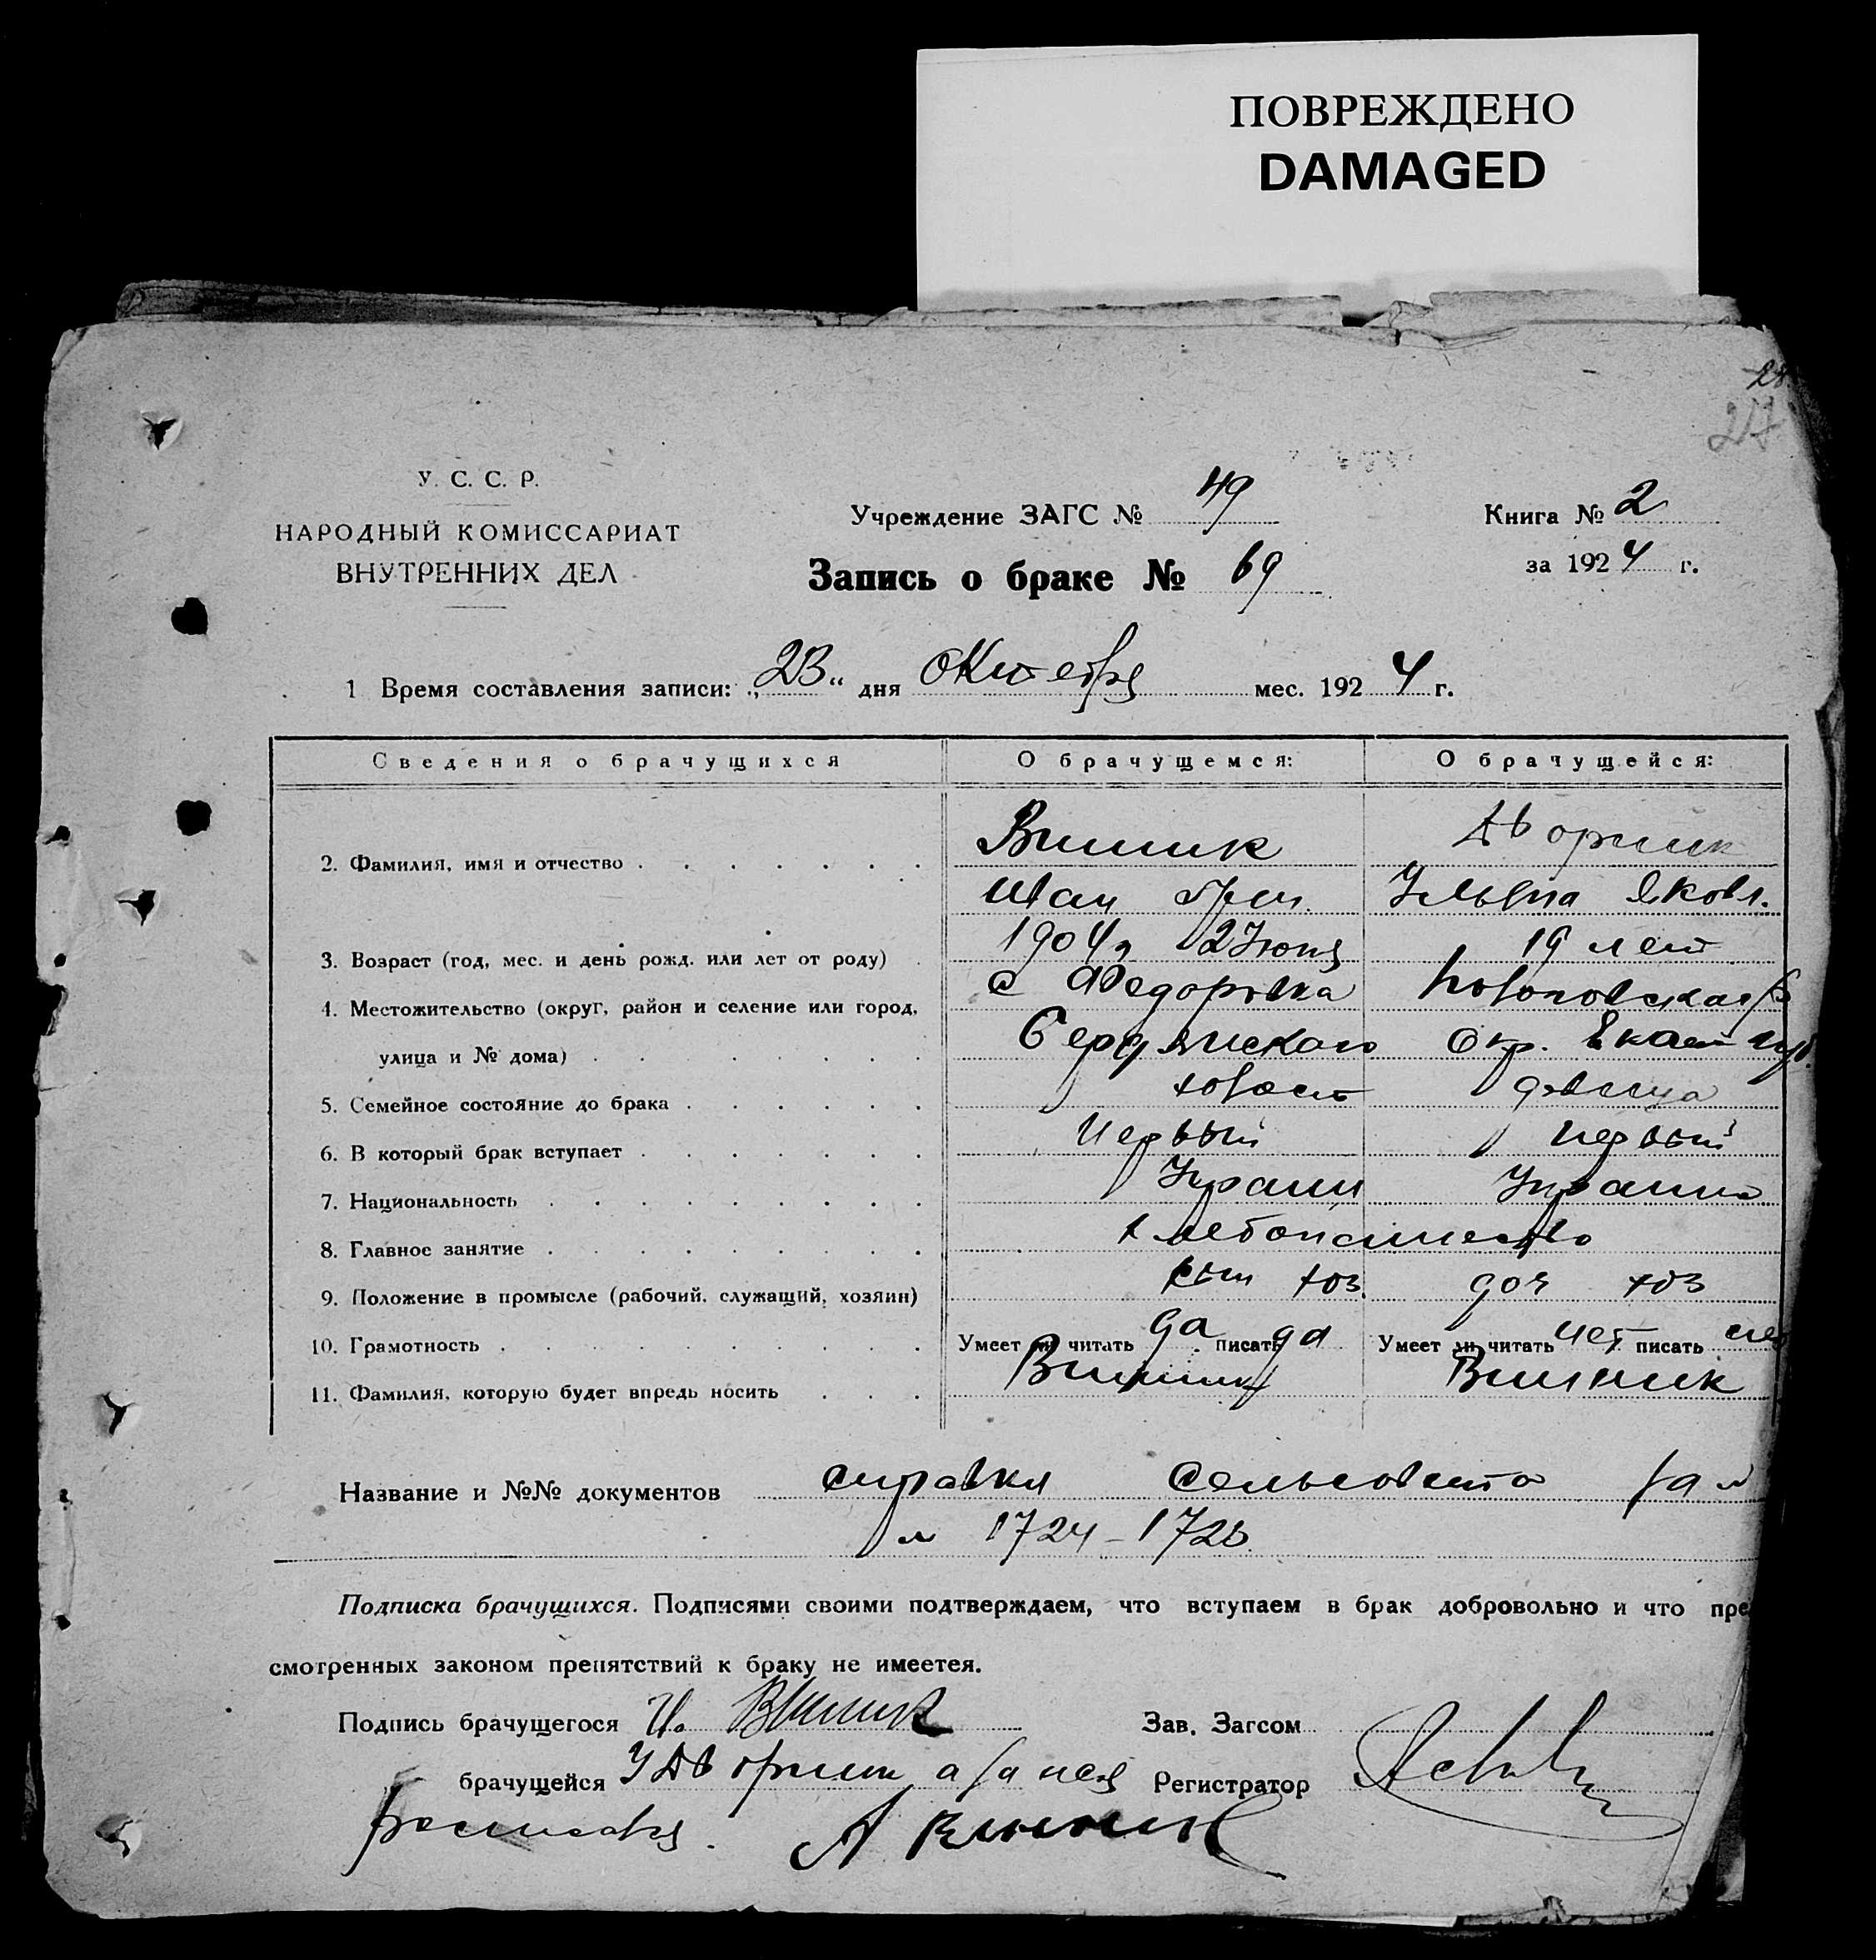 ПОВРЕЖДЕНО
DAMAGED
28
27
У. С. С. Р.
НАРОДНЫЙ КОМИССАРИАТ
ВНУТРЕННИХ ДЕЛ
Учреждение ЗАГС № 49
Книга № 2
Запись о браке № 69
за 1924 г.
1 Время составления записи: „23“ дня Октября мес. 1924 г.
Сведения о брачущихся О брачущемся: О брачущейся:
2. Фамилия, имя и отчество Винник Дворник
Иван Григ. Ульяна Яковл.
3. Возраст (год, мес. и день рожд. или лет от роду) 1904 г. 2 Июня 19 лет
4. Местожительство (округ, район и селение или город, с Федоровка
улица и № дома) Бердянского Окр. Екат губ.
5. Семейное состояние до брака холост девица
6. В который брак вступает Первый Первый
7. Национальность Украин Украинка
8. Главное занятие хлебопашество
9. Положение в промысле (рабочий, служащий, хозяин) сын хоз. доч хоз
10. Грамотность Умеет ли читать да писать да Умеет ли читать нет писать нет
11. Фамилия, которую будет впредь носить Винник Винник
Название и №№ документов справка Сельсовета за №
№ 1724-1725
Подписка брачущихся. Подписями своими подтверждаем, что вступаем в брак добровольно и что пре
смотренных законом препятствий к браку не имеетея.
Подпись брачущегося И. Винник Зав. Загсом
брачущейся У Дворник а за нея Регистратор
А Винник